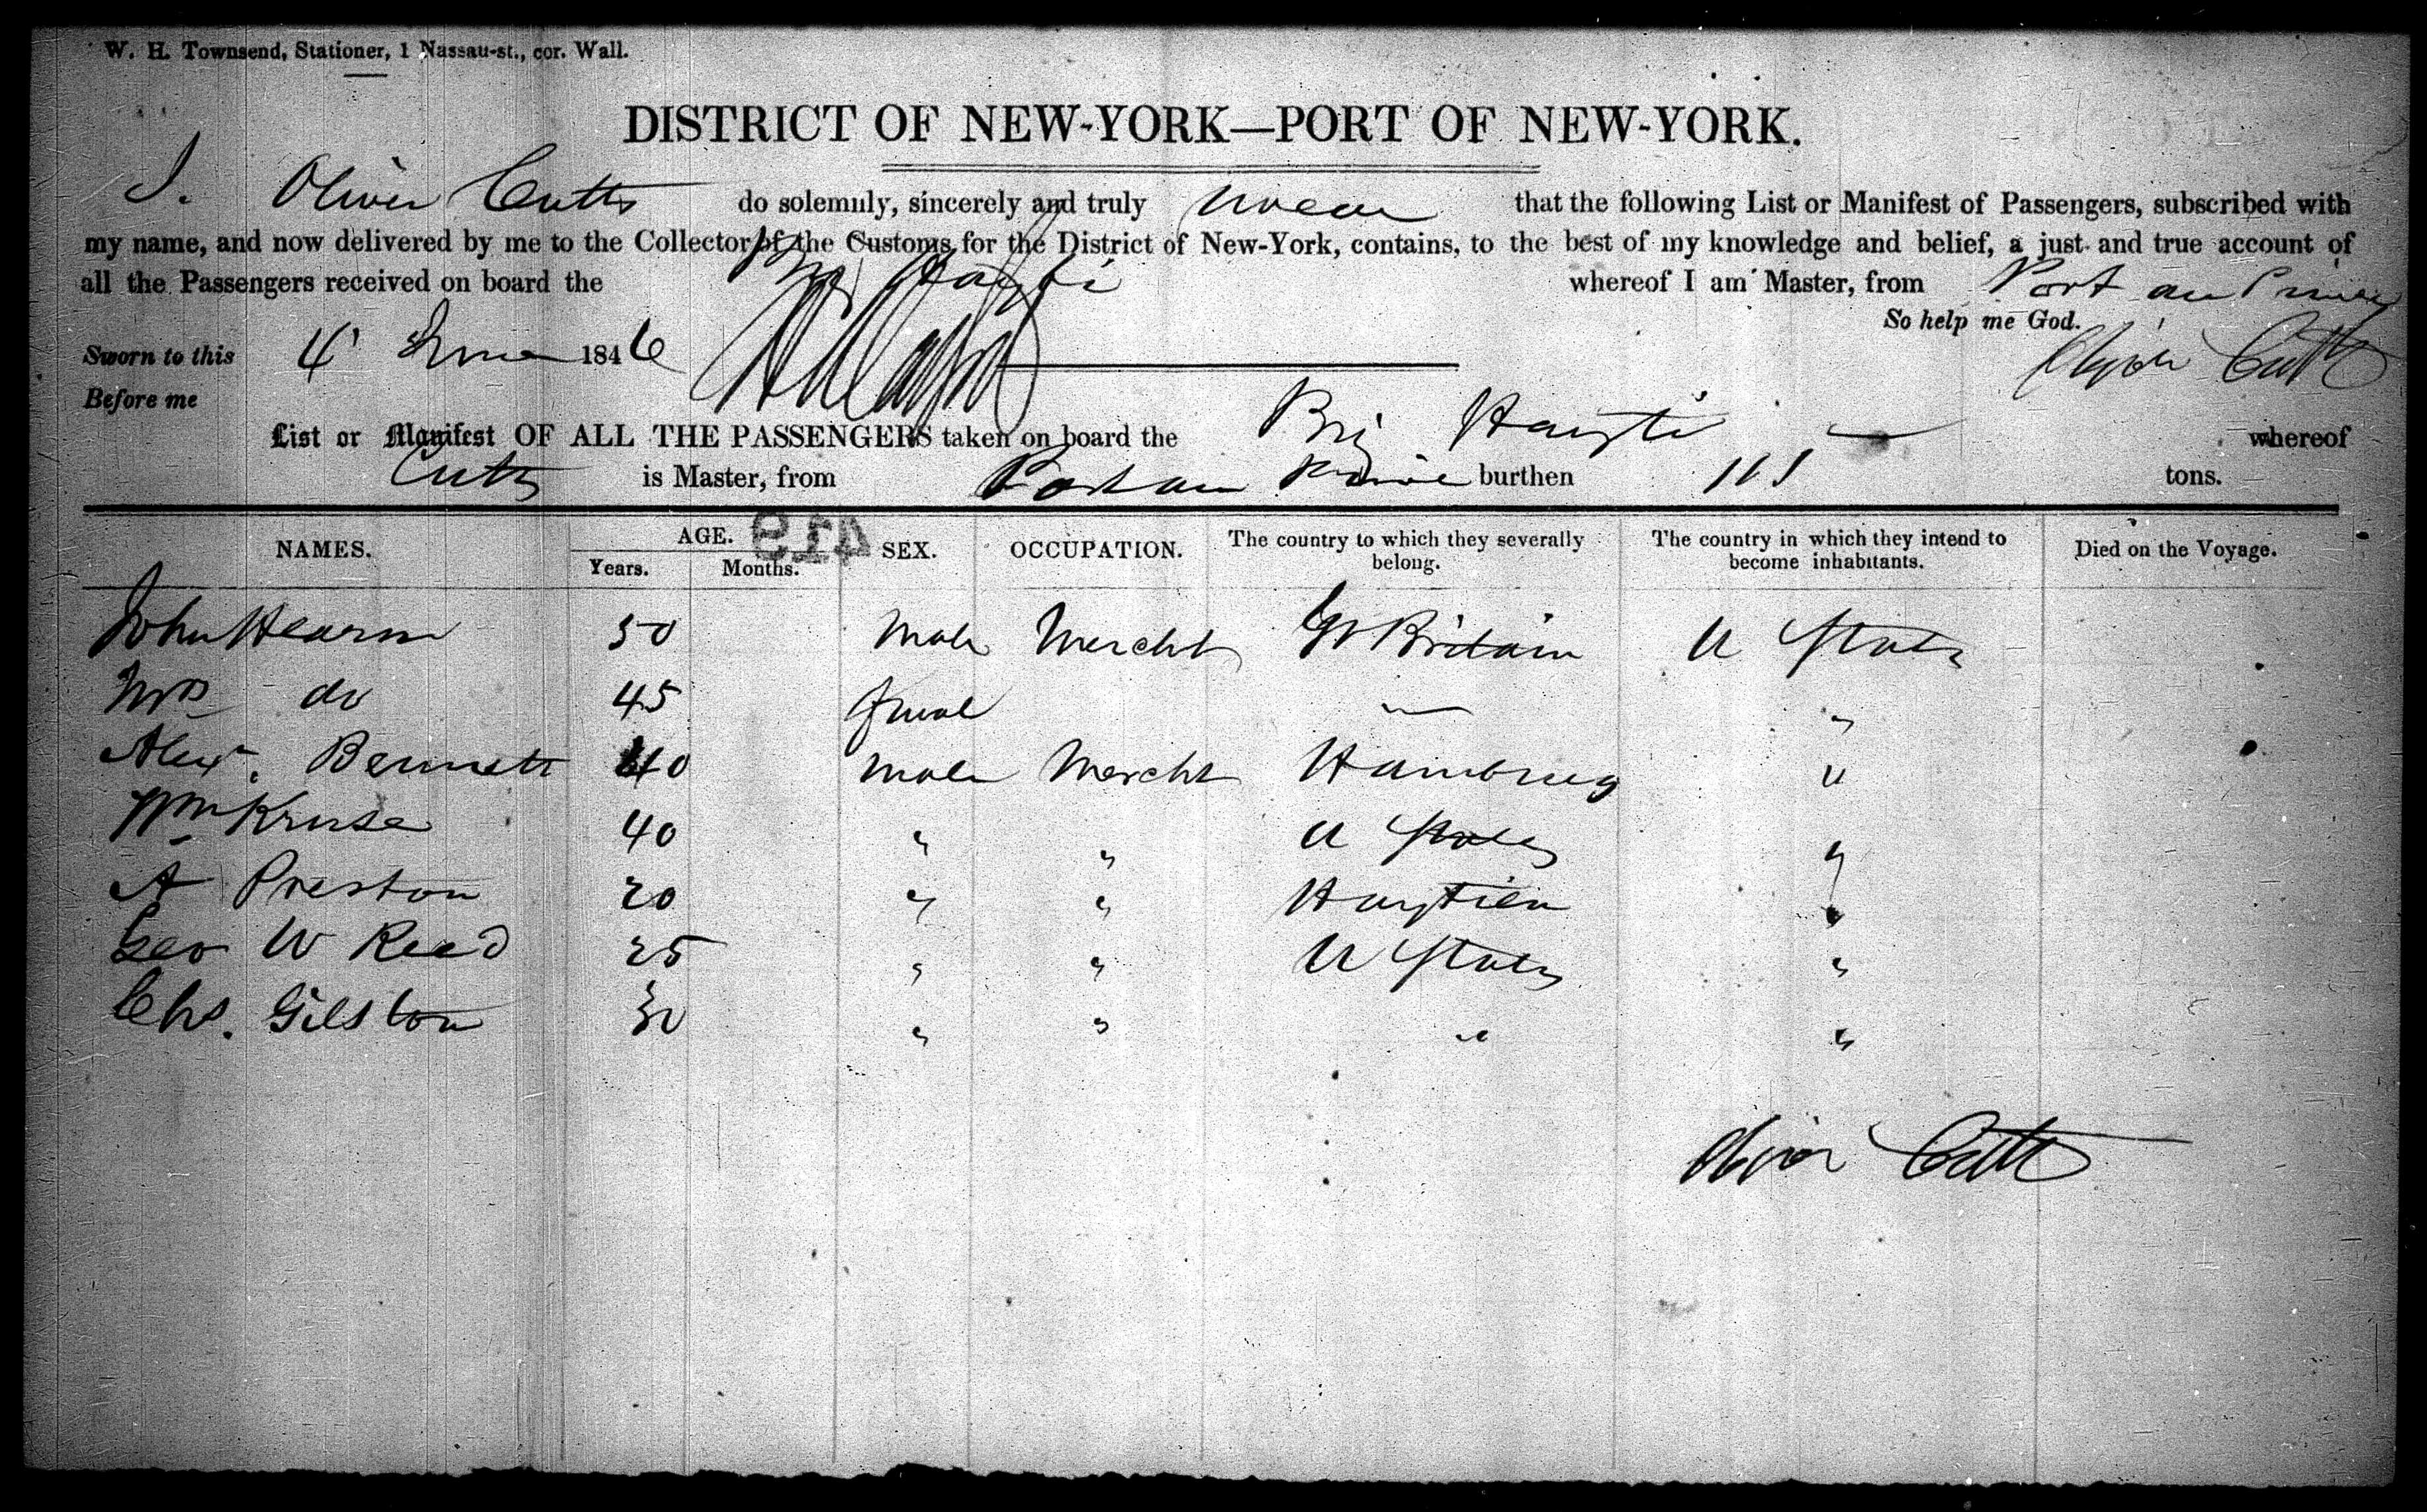 W. H. Townsend, Stationer, 1 Nassau-st., cor. Wall.
DISTRICT OF NEW-YORK—PORT OF NEW-YORK.
I. Oliver Cutts do solemnly, sincerely and truly swear that the following List or Manifest of Passengers, subscribed with
my name, and now delivered by me to the Collector of the Customs, for the District of New-York, contains, to the best of my knowledge and belief, a just and true account of
all the Passengers received on board the Brig Hayti whereof I am Master, from Port au Prince
So help me God.
Sworn to this 4 June 1846 Oliver Cutts
Before me
List or Manifest OF ALL THE PASSENGERS taken on board the Brig Hayti whereof
Cutts is Master, from Port au Prince burthen tons.
419
NAMES. AGE. Years. Months. SEX. OCCUPATION. The country to which they severally belong. The country in which they intend to become inhabitants. Died on the Voyage.
John Hearn 50 Male Mercht Gt Britain U States
Mrs do 45 femal — "
Alexr. Bennett 40 Male Mercht Hamburg "
Wm Kruse 40 " " U States "
A Preston 20 " " Haytien "
Geo W Reed 25 " " U States "
Chs. Gilston 30 " " " "
Oliver Cutts